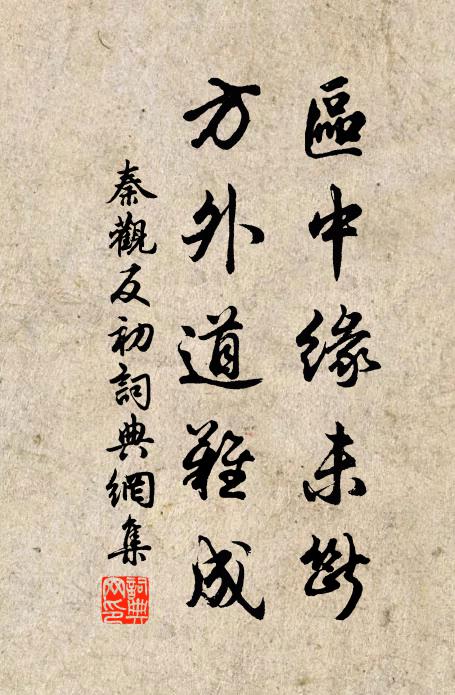 區中緣未斷
方外道難成
秦觀反初詞典網集
詞典網印